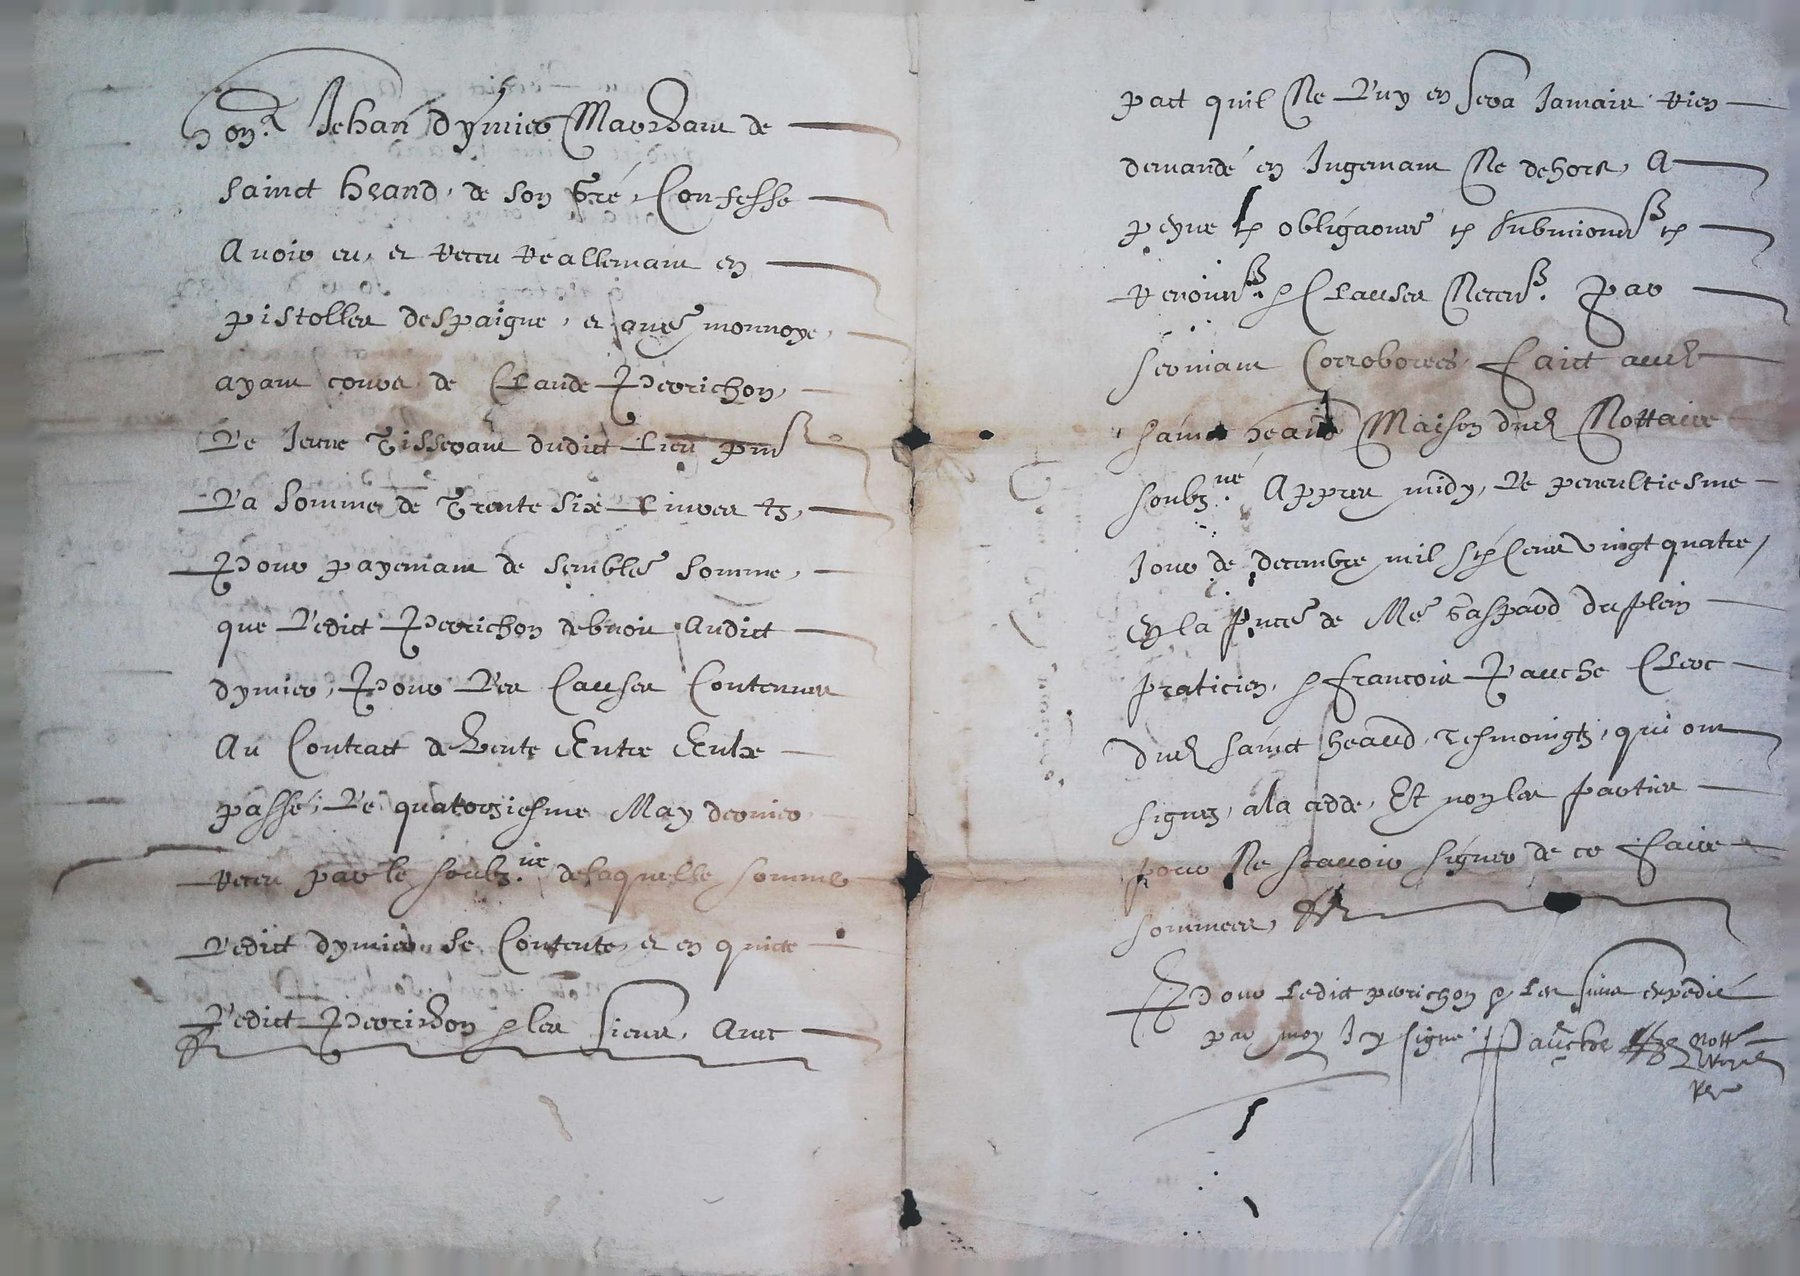 hon.e Jehan dymier Marchant de
sainct heand, de son Gré, Confesse
Avoir eu, et receu reallemant en
pistolles despaigne, et aue monnoye,
ayant cours, de Claude Perrichon,
Le Jeune Tisserant dudict Lieu pnt
La somme de Trente six Livres tz,
Pour payemant de semble somme,
que Ledict Perrichon debvoit Audict
dymier, Pour Les Causes Contenues
Au Contract de Vente Entre Eulx
passé, Le quatorziesme May dernier
receu par le soubz.né delaquelle somme
Ledict dymier se Contente, et en quitte
Ledict Perrichon & les siens, Avec
pact quil Ne Luy en sera Jamais rien
demandé en Jugemant Ne dehors, A
peyne & obligaons & submions &
renons. & Clauses Necess. par
sermant Corroborees, faict aud
sainct heand Maison dud Nottaire
soubz.né Appres midy, Le penultiesme
Jour de decembre mil six Cens vingt quatre,
En la pnce de Me Gaspard duplein
praticien, & francois Pauche Clerc
dud sainct heand, tesmoingtz, qui ont
signez, a la cedde, Et non les parties
pour Ne scavoir signer de ce faire
sommees,
Pour Ledict perrichon & Les siens expedié
par moy Icy signé Pauche Nott
Royal